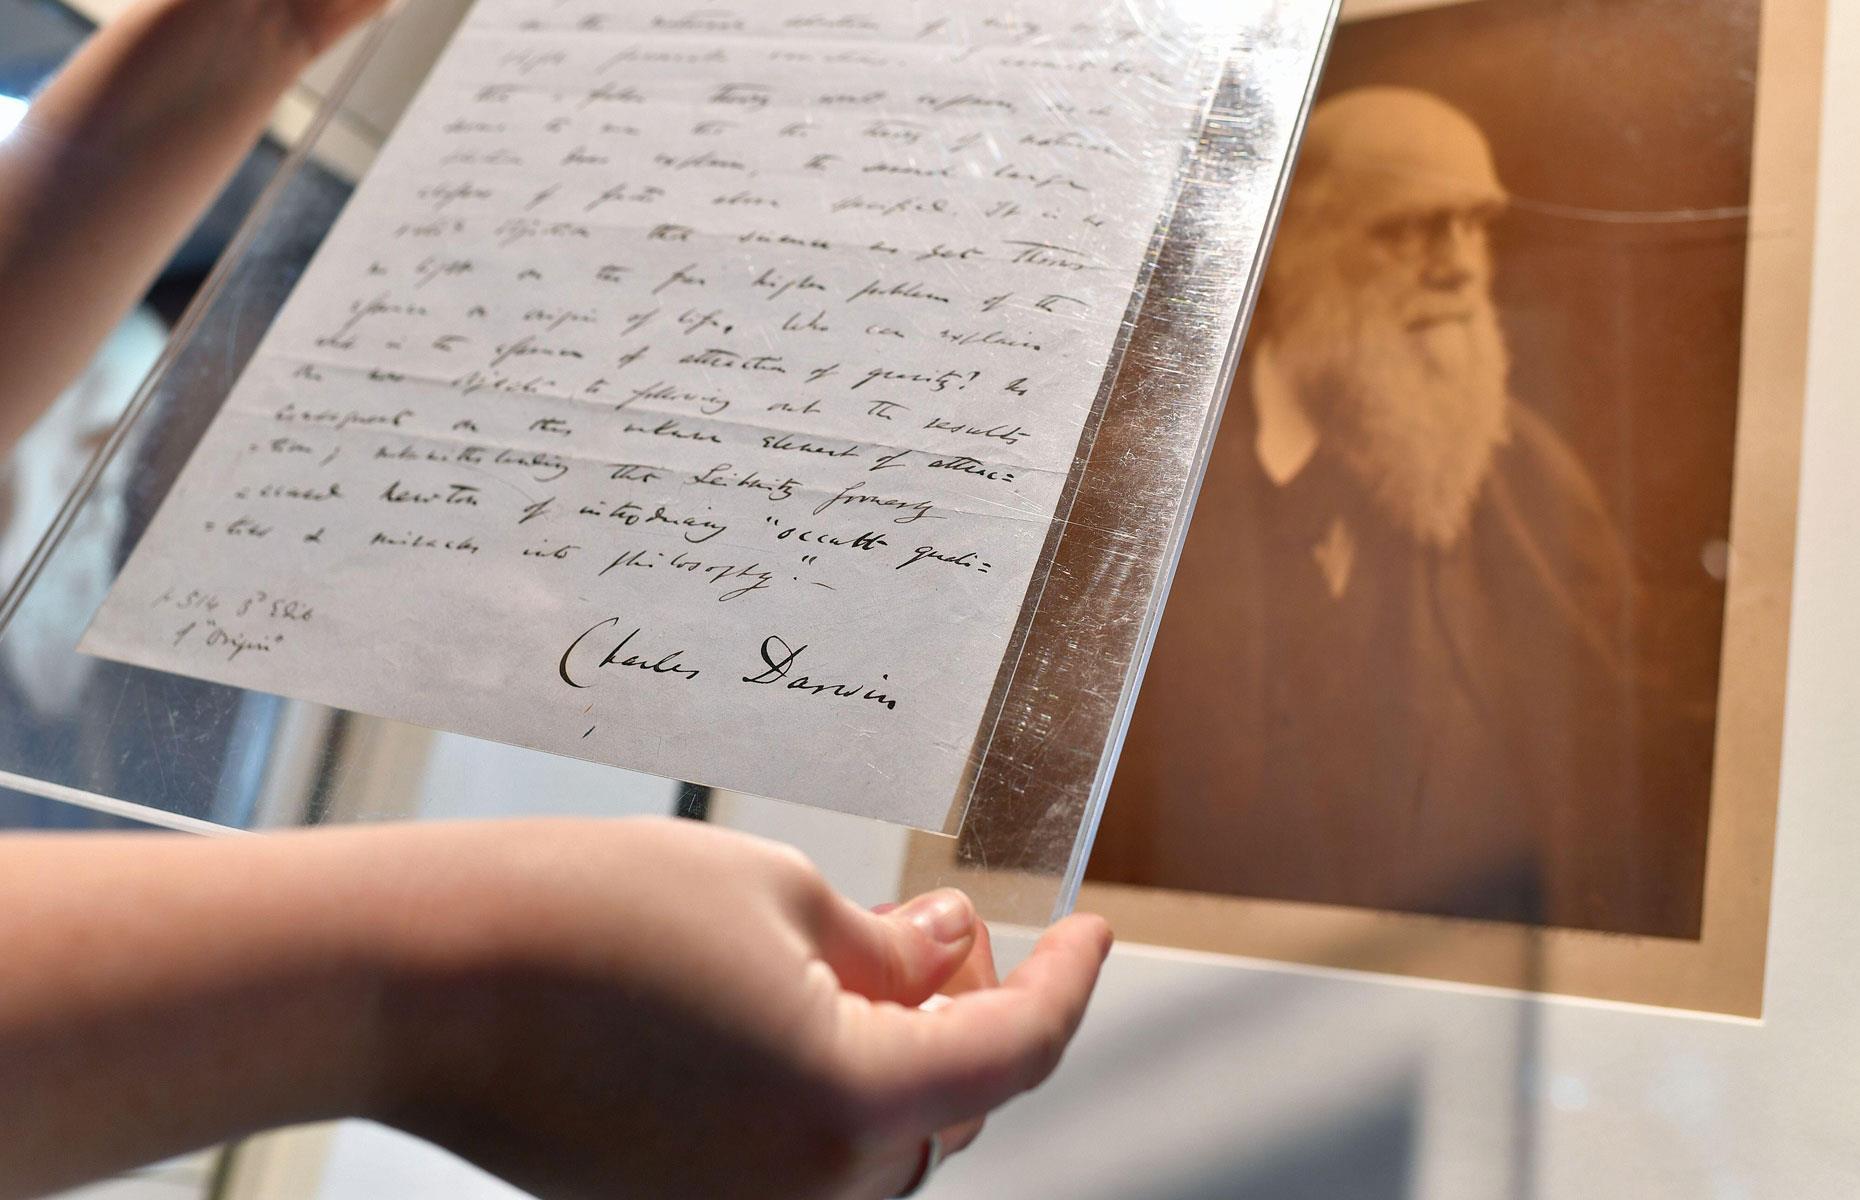 on the natural selection of many
slight favourable variations. I cannot believe
that a false theory would explain, as it
seems to me that the theory of natural
selection does explain, the several large
classes of facts above specified. It is no
valid objection that science as yet throws
no light on the far higher problem of the
essence or origin of life. Who can explain
what is the essence of attraction of gravity? No
one now objects to following out the results
consequent on this unknown element of attrac=
=tion; notwithstanding that Leibnitz formerly
=accused Newton of introducing "occult quali=
=ties & miracles into philosophy."—
p 514 3d Edit
of "Origin"
Charles Darwin